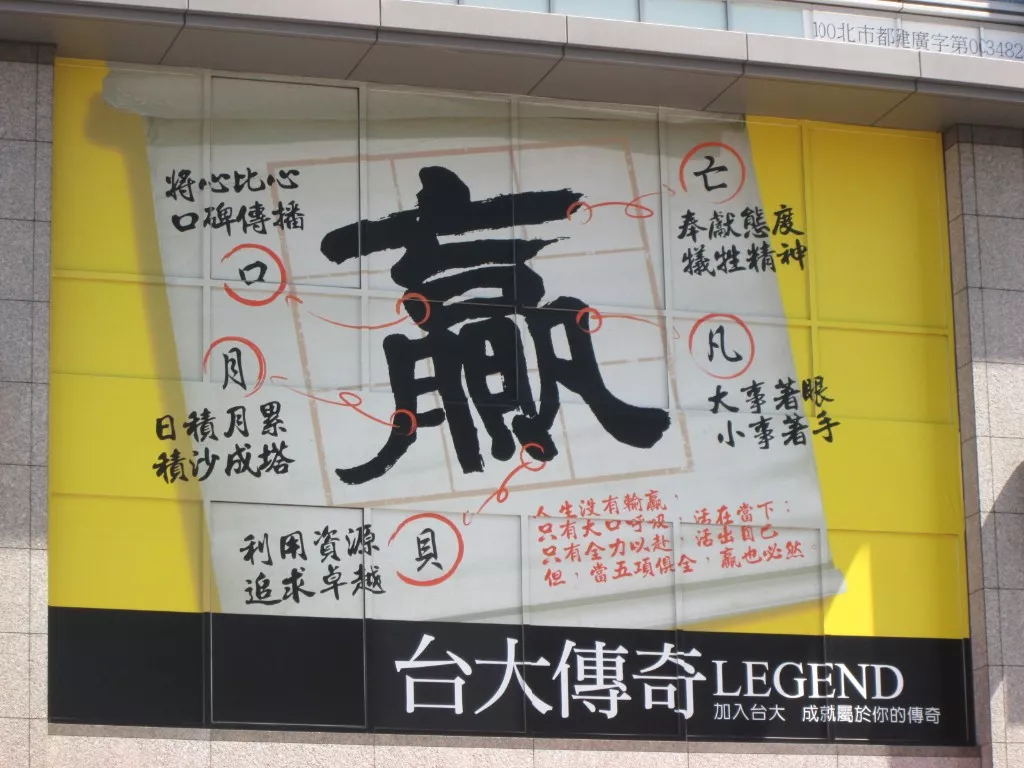 100北市都建廣字第003482
將心比心
口碑傳播
口
月
日積月累
積沙成塔
贏
亡
奉獻態度
犧牲精神
凡
大事著眼
小事著手
利用資源
追求卓越
貝
人生沒有輸贏，
只有大口呼吸，活在當下；
只有全力以赴，活出自己。
但，當五項俱全，贏也必然。
台大傳奇 LEGEND
加入台大 成就屬於你的傳奇